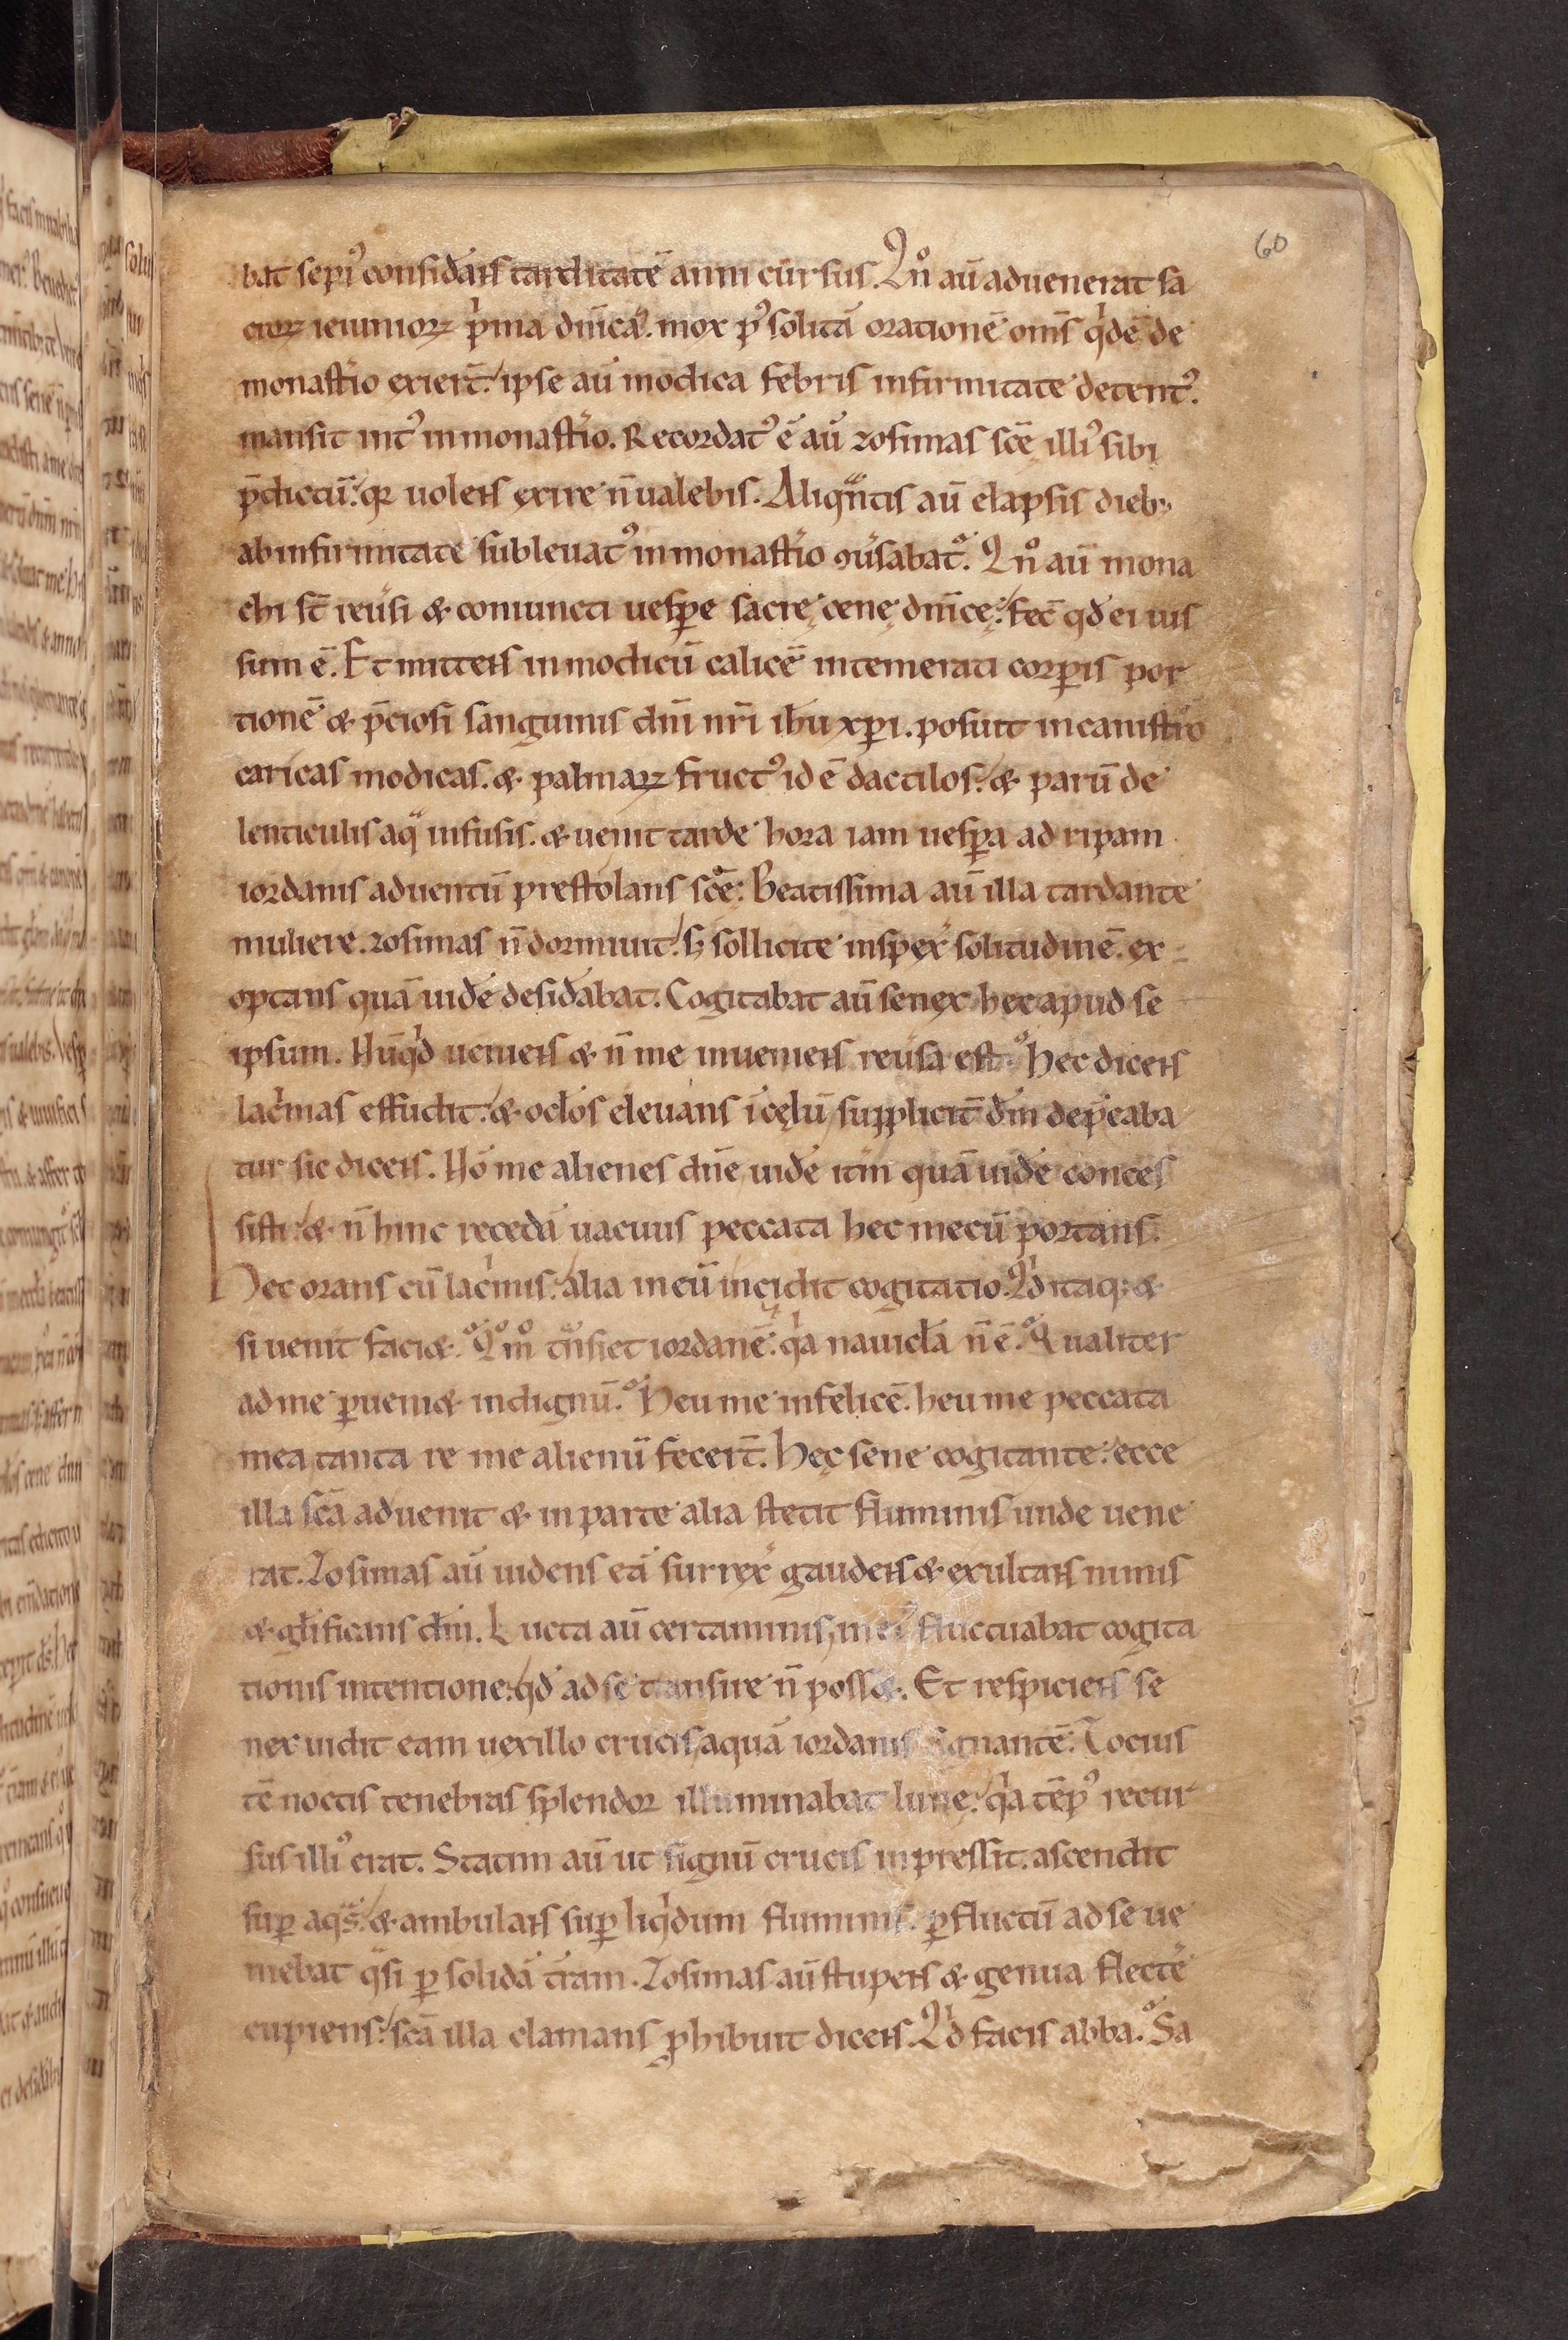 60
bat sepi᾽ considãns tarditatẽ anni cursus. Qñͦ aũ aduenerat sa
croꝝ ieiunioꝝ pͥma dñica. mox p᾽ solitã orationẽ om̃s qͥdẽ de
monastͥio exier̃t. ipse aũ modica febris infirmitate detent᾽.
mansit int᾽ in monastͥio. Recordat᾽ ẽ aũ zosimas sc̃e illi᾽ sibi
p̃dictũ. qꝛ uolens exire ñ ualebis. Aliqͣntis aũ elapsis dieb;
ab infirmitate subleuat᾽ in monastͥio ꝯũsabat᾽. Qñͦ aũ mona
chi st̃ reũsi & coniuncti uesꝑe sacrę cenę dñicę. fec̃ qd̃ ei ius
sum ẽ. Et mittens in modicũ calicẽ intemerati corꝑis por
tionẽ & p̃ciosi sanguinis dñi nr̃i ih̃u xp̃i. posuit in canistͥro
caricas modicas. & palmaꝝ fruct᾽ id ẽ dactilos. & parũ de
lenticulis aqͣ infusis. & uenit tarde hora iam uesꝑa ad ripam
iordanis aduentũ prestolans sc̃ę. Beatissima aũ illa tardante
muliere. zosimas ñ dormiuit. sꝫ sollicite inspex̃ solitudinẽ. ex
optans quã uidẽ desidãbat. Cogitabat aũ senex hec apud se
ipsum. Nũqͥd ueniens & ñ me inueniens reũsa est. Hec dicens
lacͥmas effudit. & oclõs eleuans ĩ cęlũ supplicit̃ dm̃ dep̃caba
tur sic dicens. Nõ me alienes dñe uidẽ itm̃ quã uidẽ conces
sisti. & ñ hinc recedã uacuus peccata hec mecũ portans.
Hec orans cũ lacͥmis. alia in eũ incidit cogitatio. Qͥd itaqꝫ &
si uenit faci&. Qͦmͦ tͣnsiet iordanẽ. qͥa nauicl̃a ñ ẽ. Qualiter
ad me ꝑueni& indignũ. Heu me infelicẽ. heu me peccata
mea tanta re me alienũ fecer̃t. Hęc sene cogitante. ecce
illa sc̃a aduenit & in parte alia stetit fluminis unde uene
rat. Zosimas aũ uidens eã surrex̃ gaudens & exultans nimis
& gl̃ificans dm̃. Lucta aũ certaminis in ei᾽ fluctuabat cogita
tionis intentione. qd̃ ad se transire ñ poss&. Et respiciens se
nex uidit eam uexillo crucis aquã iordanis signantẽ. Tocius
tc̃ noctis tenebras splendor illuminabat lunę. qͥa tẽp᾽ recur
sus illi᾽ erat. Statim aũ ut signũ crucis inpressit. ascendit
suꝑ aqͣs. & ambulans suꝑ liqͥdum fluminis. ꝑ fluctũ ad se ue
niebat qͣsi ꝑ solidã t̃ram. Zosimas aũ stupens & genua flectẽ
cupiens. sc̃a illa clamans ꝓhibuit dicens. Qͥd facis abba. Sa